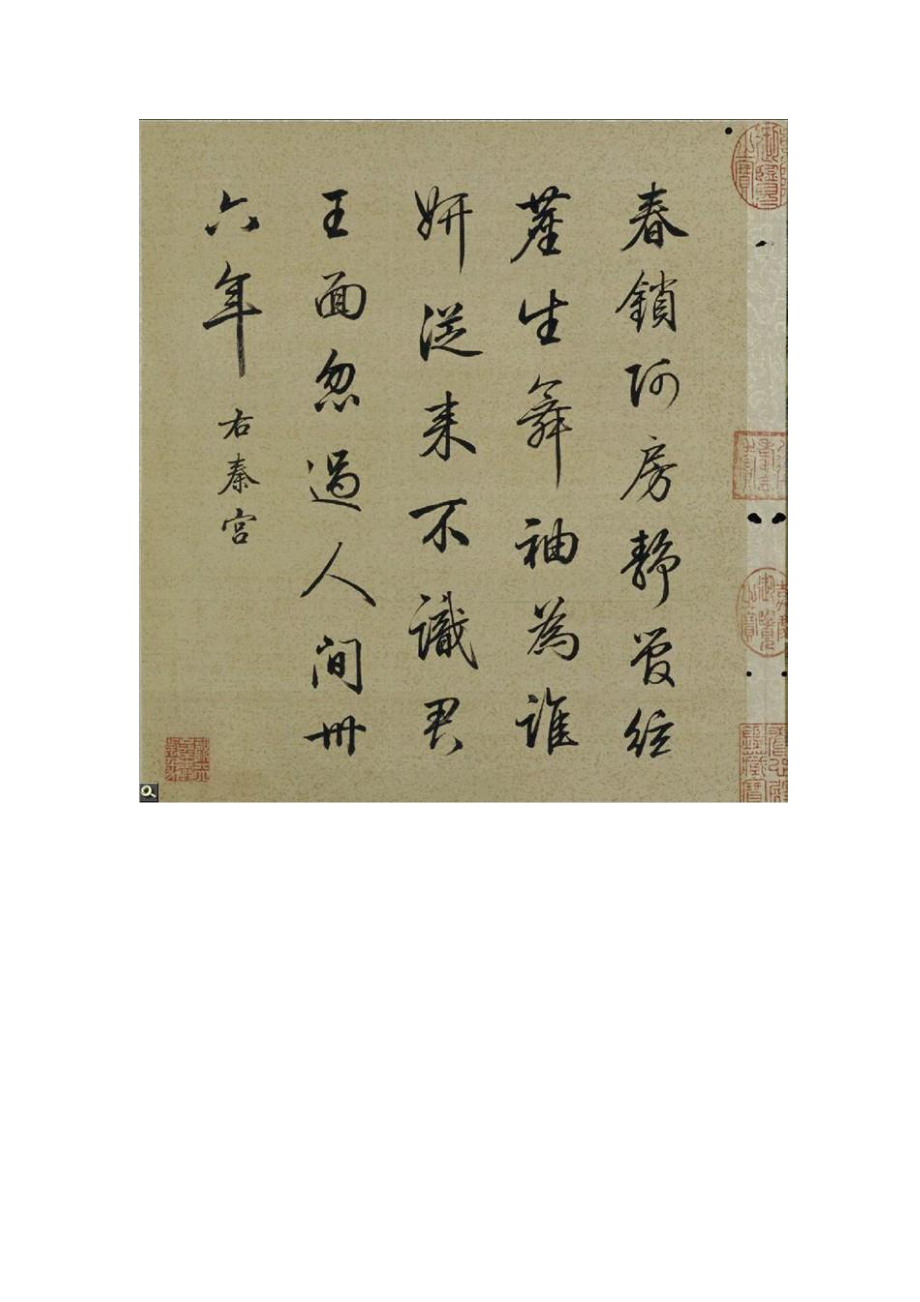 春鎖阿房靜管絃
塵生舞袖為誰
妍從来不識君
王面忽過人间卅
六年
右秦宮